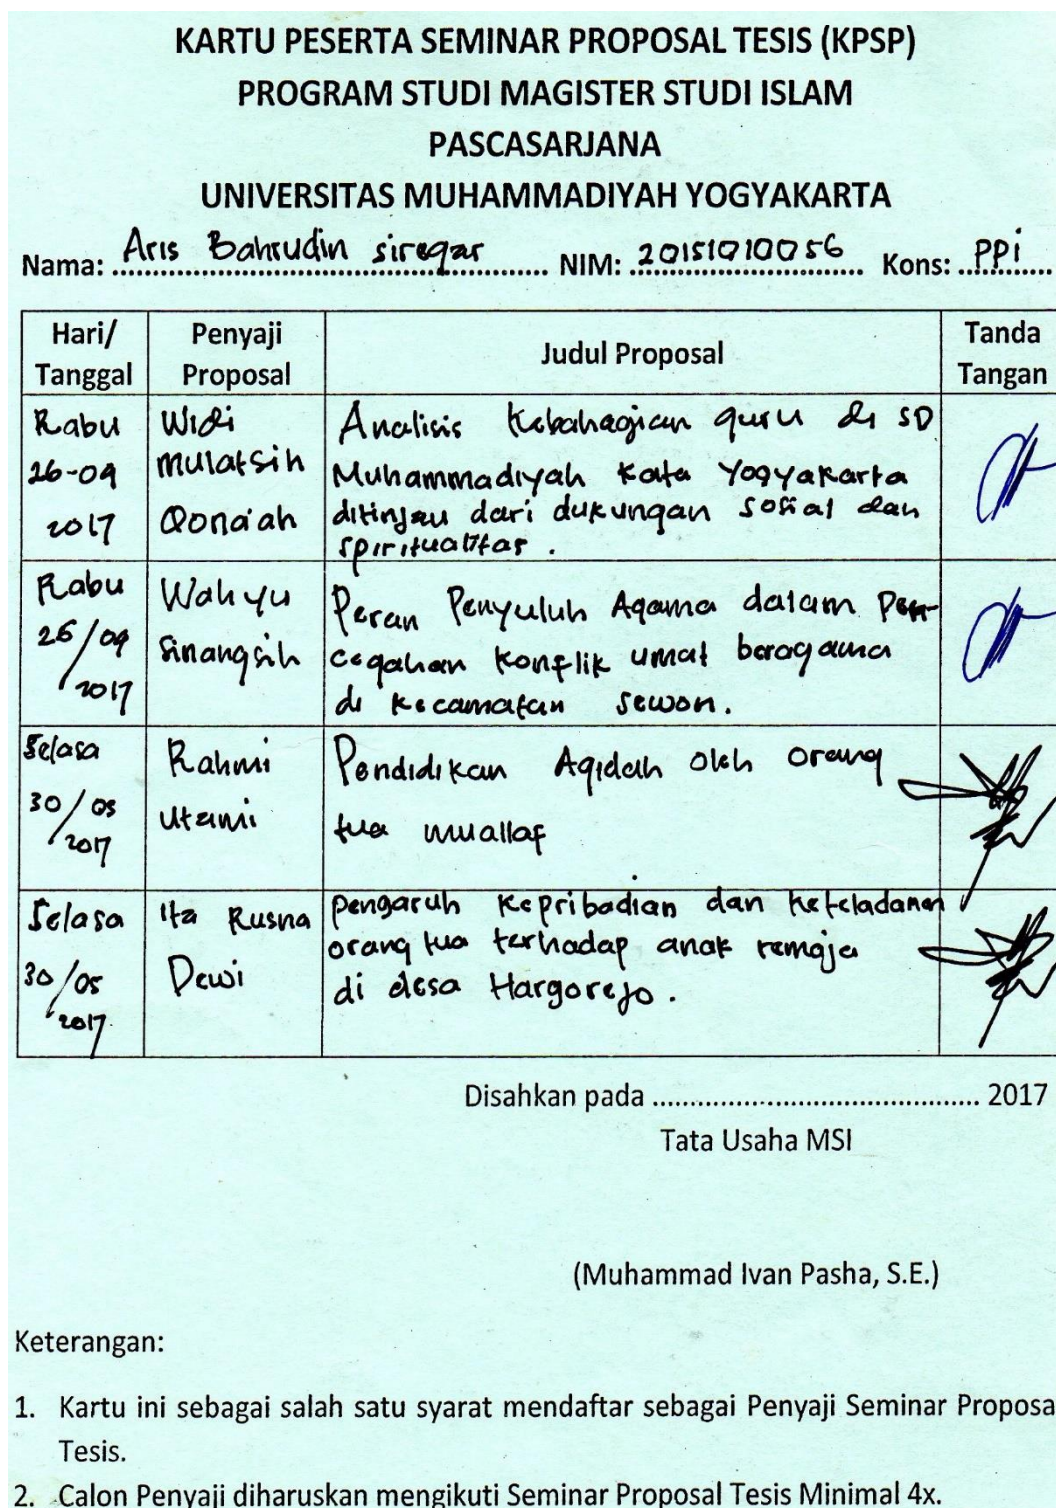 KARTU PESERTA SEMINAR PROPOSAL TESIS (KPSP)
PROGRAM STUDI MAGISTER STUDI ISLAM
PASCASARJANA
UNIVERSITAS MUHAMMADIYAH YOGYAKARTA
Nama: Aris Bahrudin siregar NIM: 20151010056 Kons: PPi
Hari/ Tanggal Penyaji Proposal Judul Proposal Tanda Tangan
Rabu Widi Analisis Kebahagian guru di SD
26-04 mulatsih Muhammadiyah Kota Yogyakarta
2017 Qona'ah ditinjau dari dukungan sosial dan
spiritualitas.
Rabu Wahyu Peran Penyuluh Agama dalam pen-
26/04 Sinangsih cegahan konflik umat beragama
2017 di kecamatan sewon.
Selasa Rahmi Pendidikan Aqidah oleh orang
30/05 Utami tua muallaf
2017
Selasa Ita Rusna pengaruh kepribadian dan keteladanan
30/05 Dewi orang tua terhadap anak remaja
2017 di desa Hargorejo.
Disahkan pada ............................................ 2017
Tata Usaha MSI
(Muhammad Ivan Pasha, S.E.)
Keterangan:
1. Kartu ini sebagai salah satu syarat mendaftar sebagai Penyaji Seminar Proposa
Tesis.
2. Calon Penyaji diharuskan mengikuti Seminar Proposal Tesis Minimal 4x.